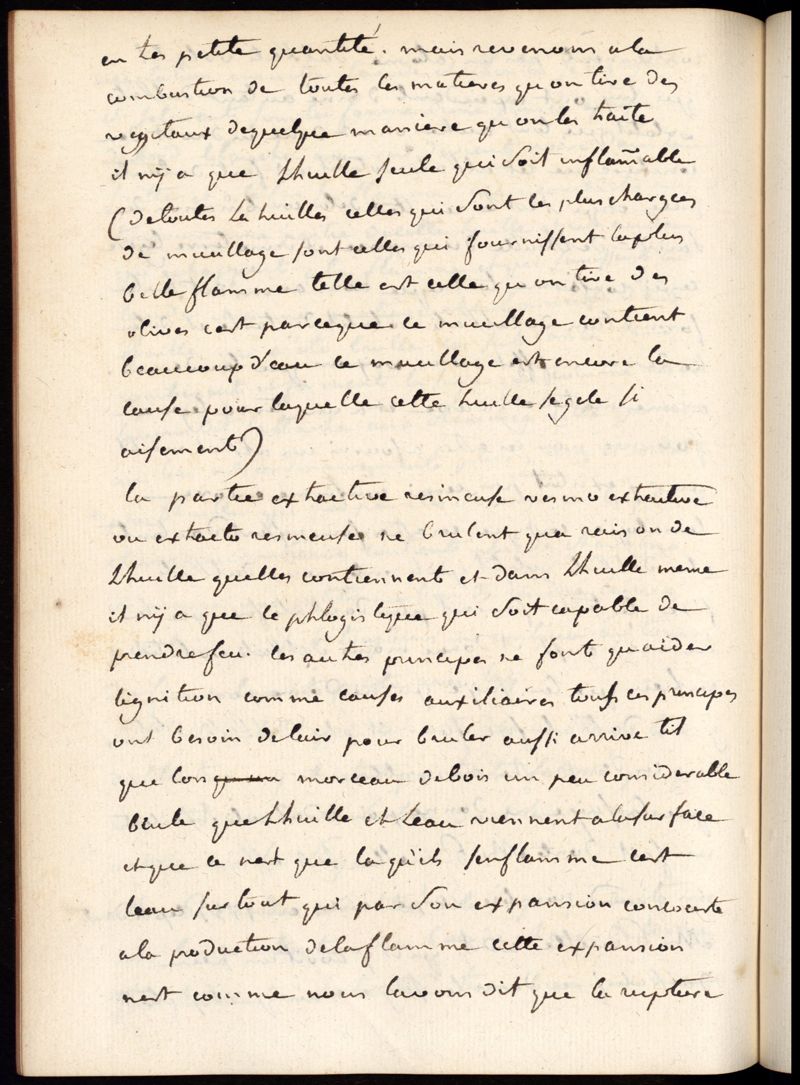 en tes petite quantité. mais revenons a la
combustion de toutes les matieres qu on tire des
vegetaux dequelque maniere qu on les traite
il ny a que Lhuille seule qui soit inflam̄able
(detoutes La huilles celles qui sont les plus chargées
de mucillage sont celles qui fournissent laplus
belle flamme telle est celle qu on tire des
olives cest parceque ce mucillage contient
beaucoup d'eau ce mucillage est encore la
cause pour laquelle cette huille se gele si
aisement)
la partie extractive resineuse resino extractive
ou extracto resineuse ne brulent qua raison de
Lhuille quelles contiennent et dans Lhuille meme
il ny a que le phlogistique qui soit capable de
prendre feu. les autres principes ne font qu aider
lignition comme causes auxiliaires touts ces principes
ont besoin delair pour bruler aussi arrive til
que lorsqu un morceau debois un peu considerable
brule que Lhuille et Leau viennent alasurface
et que ce nest que la quils senflamme cest
leau surtout qui par son expansion concoure
ala production delaflamme cette expansion
nest comme nous lavons dit que la rupture